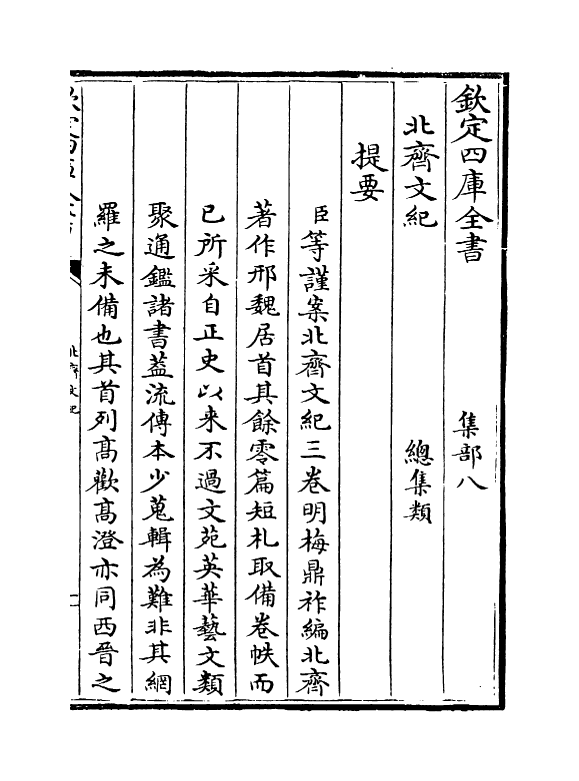 欽定四庫全書 集部八
北齊文紀 總集類
提要
臣等謹案北齊文紀三卷明梅鼎祚編北齊
著作邢魏居首其餘零篇短札取備卷帙而
已所采自正史以来不過文苑英華藝文類
聚通鑑諸書葢流傳本少蒐輯為難非其網
羅之未備也其首列髙歡髙澄亦同西晉之
北齊文紀